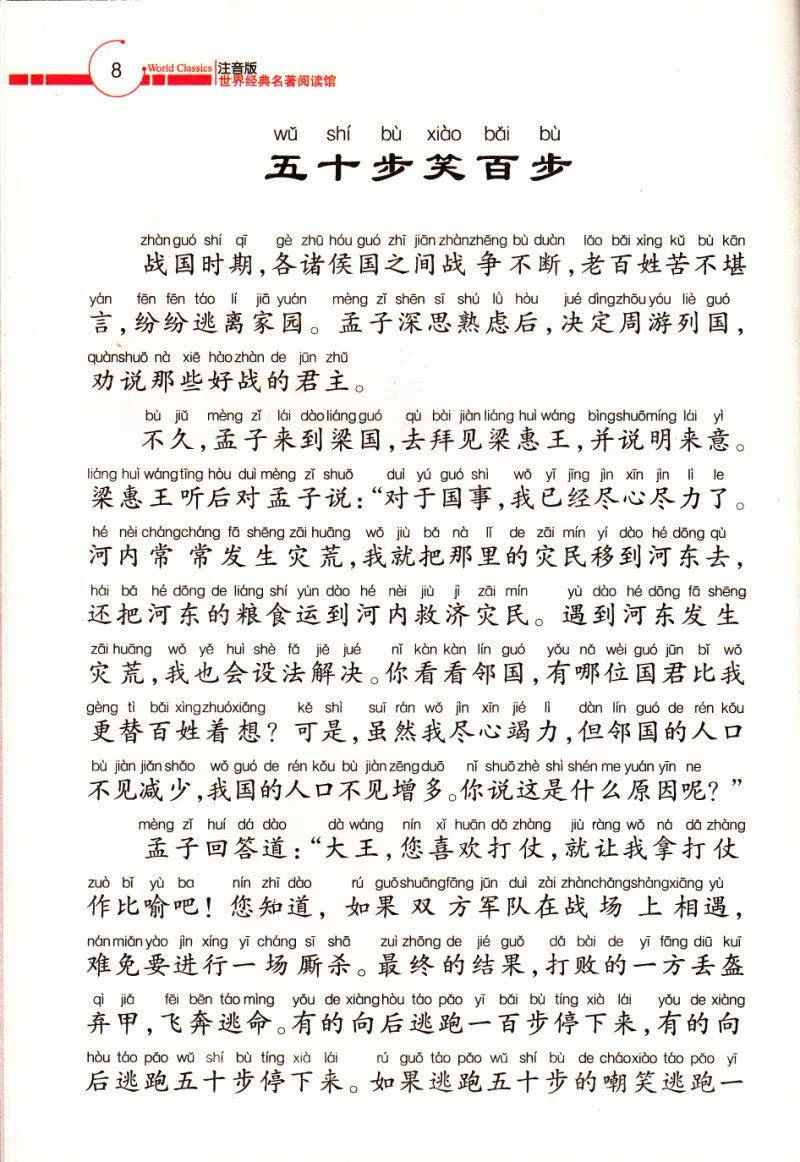 8
World Classics
注音版
世界经典名著阅读馆
wǔ shí bù xiào bǎi bù
五十步笑百步
zhàn guó shí qī gè zhū hóu guó zhī jiān zhàn zhēng bù duàn lǎo bǎi xìng kǔ bù kān
战国时期,各诸侯国之间战争不断,老百姓苦不堪
yán fēn fēn táo lí jiā yuán mèng zǐ shēn sī shú lǜ hòu jué dìng zhōu yóu liè guó
言,纷纷逃离家园。孟子深思熟虑后,决定周游列国,
quàn shuō nà xiē hào zhàn de jūn zhǔ
劝说那些好战的君主。
bù jiǔ mèng zǐ lái dào liáng guó qù bài jiàn liáng huì wáng bìng shuō míng lái yì
不久,孟子来到梁国,去拜见梁惠王,并说明来意。
liáng huì wáng tīng hòu duì mèng zǐ shuō duì yú guó shì wǒ yǐ jīng jìn xīn jìn lì le
梁惠王听后对孟子说:“对于国事,我已经尽心尽力了。
hé nèi cháng cháng fā shēng zāi huāng wǒ jiù bǎ nà lǐ de zāi mín yí dào hé dōng qù
河内常常发生灾荒,我就把那里的灾民移到河东去,
hái bǎ hé dōng de liáng shí yùn dào hé nèi jiù jì zāi mín yù dào hé dōng fā shēng
还把河东的粮食运到河内救济灾民。遇到河东发生
zāi huāng wǒ yě huì shè fǎ jiě jué nǐ kàn kàn lín guó yǒu nǎ wèi guó jūn bǐ wǒ
灾荒,我也会设法解决。你看看邻国,有哪位国君比我
gèng tì bǎi xìng zhuó xiǎng kě shì suī rán wǒ jìn xīn jié lì dàn lín guó de rén kǒu
更替百姓着想?可是,虽然我尽心竭力,但邻国的人口
bù jiàn jiǎn shǎo wǒ guó de rén kǒu bù jiàn zēng duō nǐ shuō zhè shì shén me yuán yīn ne
不见减少,我国的人口不见增多。你说这是什么原因呢?”
mèng zǐ huí dá dào dà wáng nín xǐ huān dǎ zhàng jiù ràng wǒ ná dǎ zhàng
孟子回答道:“大王,您喜欢打仗,就让我拿打仗
zuò bǐ yù ba nín zhī dào rú guǒ shuāng fāng jūn duì zài zhàn chǎng shàng xiāng yù
作比喻吧!您知道,如果双方军队在战场上相遇,
nán miǎn yào jìn xíng yī cháng sī shā zuì zhōng de jié guǒ dǎ bài de yī fāng diū kuī
难免要进行一场厮杀。最终的结果,打败的一方丢盔
qì jiǎ fēi bēn táo mìng yǒu de xiàng hòu táo pǎo yī bǎi bù tíng xià lái yǒu de xiàng
弃甲,飞奔逃命。有的向后逃跑一百步停下来,有的向
hòu táo pǎo wǔ shí bù tíng xià lái rú guǒ táo pǎo wǔ shí bù de cháo xiào táo pǎo yī
后逃跑五十步停下来。如果逃跑五十步的嘲笑逃跑一